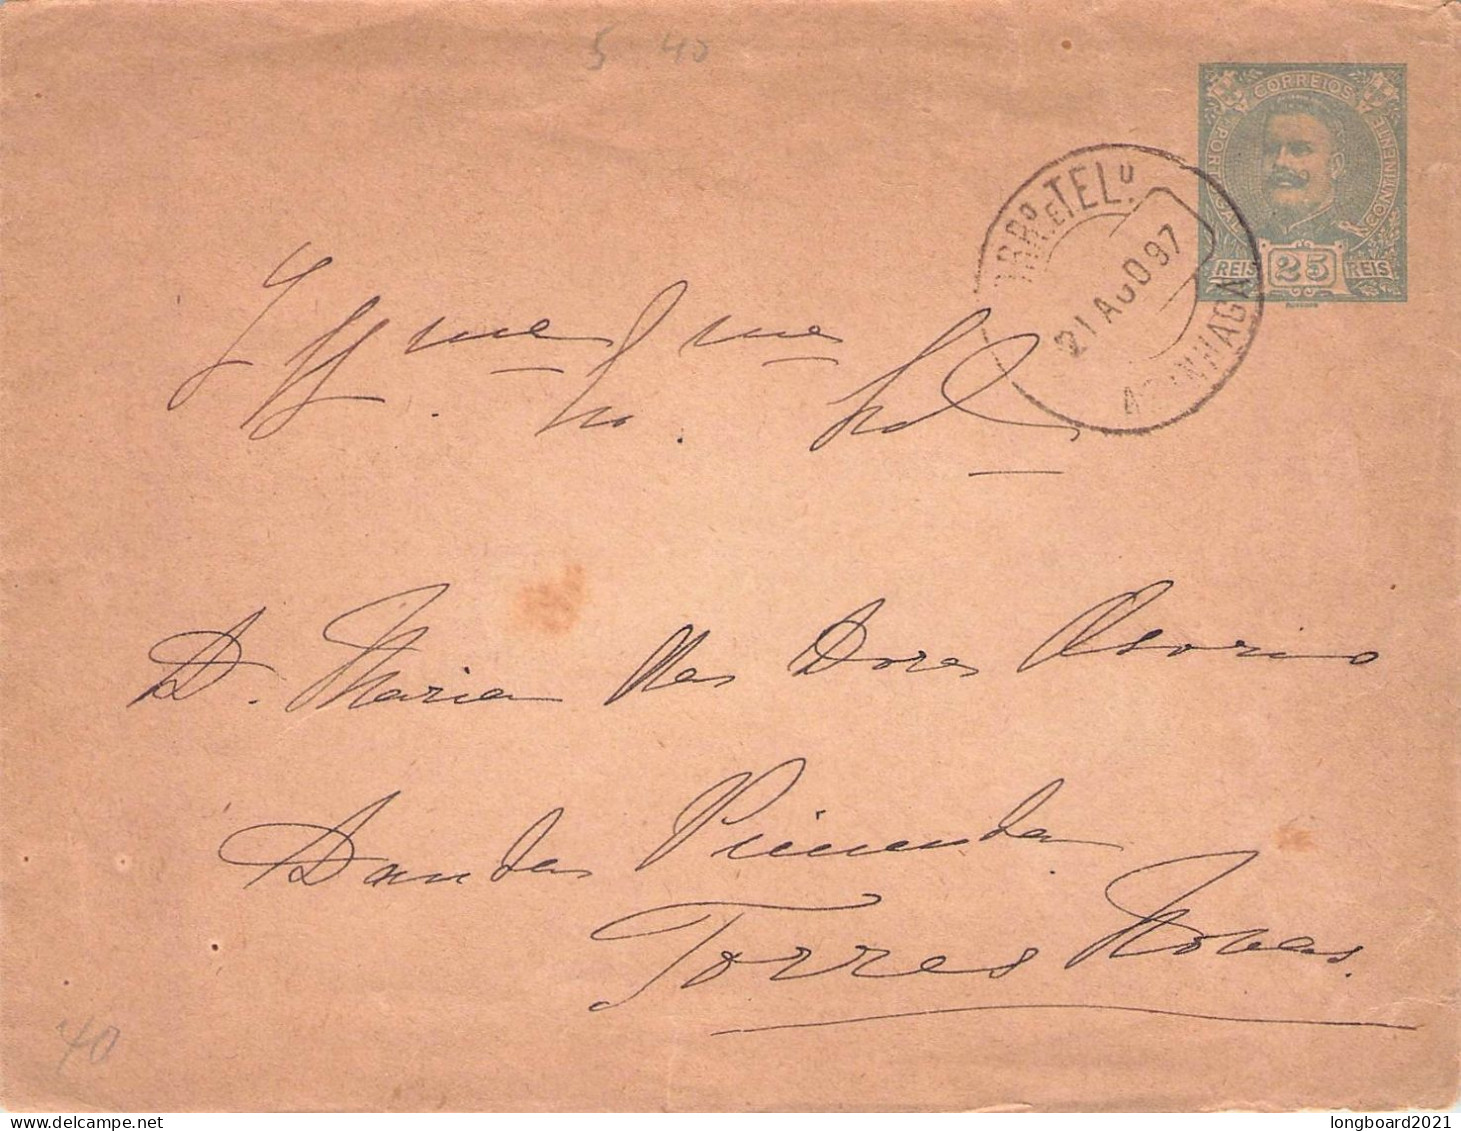 5 40
CORREIOS
PORTUGAL CONTINENTE
REIS 25 REIS
CORRO. E TELO.
21 AGO 97
AZINHAGA
Illma Exma
Sra
D. Maria das Dores Osorio
Dantas Pimenta
Torres Novas.
40
longboard2021